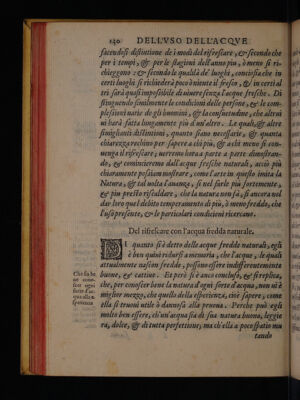 130 DELL'VSO DELL'ACQVE
facendosi distintione de i modi del rifrescare, & secondo che
per i tempi, & per le stagioni dell'anno piu, ò meno si ri-
chieggono: & secondo le qualità de' luoghi, conciosia che in
certi luoghi si richiederà poco ò niente il fresco, & in certi al
tri sarà quasi impossibile di viuere senza l'acque fresche. Di
stinguendo similmente le conditioni delle persone, & le com-
plessioni varie de gli huomini, & le consuetudini, che altrui
ni harà fatta lungamente piu d'un'altro. Le quali, & altre
simiglianti distintioni, quanto siano necessarie, & quanta
chiarezza rechino per sapere a chi più, & a chi meno si con-
uenga il rifrescare, verremo hora a parte a parte dimostran-
do, & cominciaremo dall'acque fresche naturali, acciò più
chiaramente possiam mostrare, come l'arte in questo imita la
Natura, & tal uolta l'auanza, & nel farle piu fredde,
& piu presto rifreddare, che la natura non fà, si ancora nel
dar loro quel debito temperamento di più, ò meno freddo, che
l'uso presente, & le particolari conditioni ricercano.
Del rifrescare con l'acqua fredda naturale.
DI quanto si è detto delle acque fredde naturali, egli
è ben quini ridursi a memoria, che l'acque, le quali
attualmente nascon fredde, possono essere indifferentemente
buone, & cattiue. Et però si è anco concluso, & si replica,
che, per conoscer bene la natura d'ogni sorte d'acqua, non ui è
miglior mezzo, che quello della esperienza, cioè sapere, come
ella si truoui utile ò dannosa alla pruoua. Perche può egli
molto ben essere, ch'un'acqua sia di sua natura buona, leggie
ra, dolce, & di tutta perfettione, ma ch'ella à poco spatio mu
tando
Che sia be
ne cono-
scer ogni
sorte d'ac-
qua alla e-
sperienza